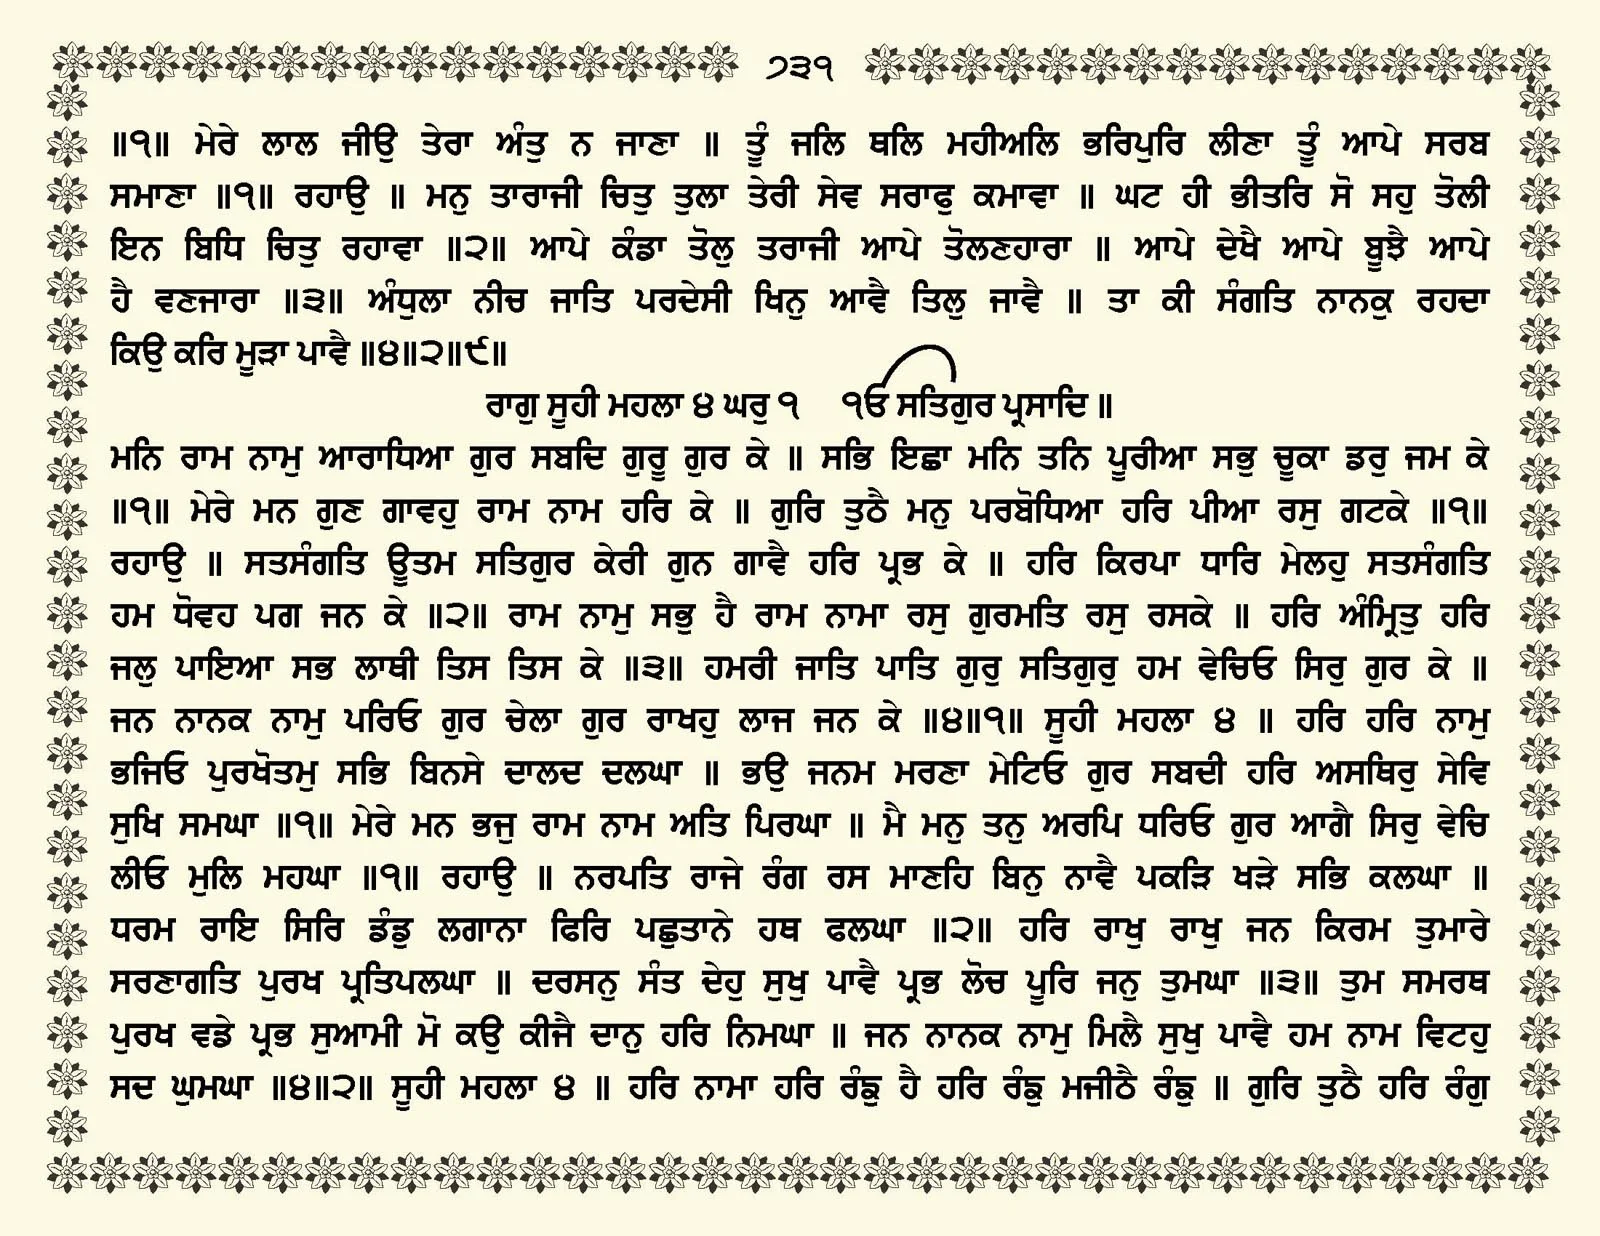 ੭੩੧
॥੧॥ ਮੇਰੇ ਲਾਲ ਜੀਉ ਤੇਰਾ ਅੰਤੁ ਨ ਜਾਣਾ ॥ ਤੂੰ ਜਲਿ ਥਲਿ ਮਹੀਅਲਿ ਭਰਿਪੁਰਿ ਲੀਣਾ ਤੂੰ ਆਪੇ ਸਰਬ
ਸਮਾਣਾ ॥੧॥ ਰਹਾਉ ॥ ਮਨੁ ਤਾਰਾਜੀ ਚਿਤੁ ਤੁਲਾ ਤੇਰੀ ਸੇਵ ਸਰਾਫੁ ਕਮਾਵਾ ॥ ਘਟ ਹੀ ਭੀਤਰਿ ਸੋ ਸਹੁ ਤੋਲੀ
ਇਨ ਬਿਧਿ ਚਿਤੁ ਰਹਾਵਾ ॥੨॥ ਆਪੇ ਕੰਡਾ ਤੋਲੁ ਤਰਾਜੀ ਆਪੇ ਤੋਲਣਹਾਰਾ ॥ ਆਪੇ ਦੇਖੈ ਆਪੇ ਬੂਝੈ ਆਪੇ
ਹੈ ਵਣਜਾਰਾ ॥੩॥ ਅੰਧੁਲਾ ਨੀਚ ਜਾਤਿ ਪਰਦੇਸੀ ਖਿਨੁ ਆਵੈ ਤਿਲੁ ਜਾਵੈ ॥ ਤਾ ਕੀ ਸੰਗਤਿ ਨਾਨਕੁ ਰਹਦਾ
ਕਿਉ ਕਰਿ ਮੂੜਾ ਪਾਵੈ ॥੪॥੨॥੯॥
ਰਾਗੁ ਸੂਹੀ ਮਹਲਾ ੪ ਘਰੁ ੧ ੴ ਸਤਿਗੁਰ ਪ੍ਰਸਾਦਿ ॥
ਮਨਿ ਰਾਮ ਨਾਮੁ ਆਰਾਧਿਆ ਗੁਰ ਸਬਦਿ ਗੁਰੂ ਗੁਰ ਕੇ ॥ ਸਭਿ ਇਛਾ ਮਨਿ ਤਨਿ ਪੂਰੀਆ ਸਭੁ ਚੂਕਾ ਡਰੁ ਜਮ ਕੇ
॥੧॥ ਮੇਰੇ ਮਨ ਗੁਣ ਗਾਵਹੁ ਰਾਮ ਨਾਮ ਹਰਿ ਕੇ ॥ ਗੁਰਿ ਤੁਠੈ ਮਨੁ ਪਰਬੋਧਿਆ ਹਰਿ ਪੀਆ ਰਸੁ ਗਟਕੇ ॥੧॥
ਰਹਾਉ ॥ ਸਤਸੰਗਤਿ ਊਤਮ ਸਤਿਗੁਰ ਕੇਰੀ ਗੁਨ ਗਾਵੈ ਹਰਿ ਪ੍ਰਭ ਕੇ ॥ ਹਰਿ ਕਿਰਪਾ ਧਾਰਿ ਮੇਲਹੁ ਸਤਸੰਗਤਿ
ਹਮ ਧੋਵਹ ਪਗ ਜਨ ਕੇ ॥੨॥ ਰਾਮ ਨਾਮੁ ਸਭੁ ਹੈ ਰਾਮ ਨਾਮਾ ਰਸੁ ਗੁਰਮਤਿ ਰਸੁ ਰਸਕੇ ॥ ਹਰਿ ਅੰਮ੍ਰਿਤੁ ਹਰਿ
ਜਲੁ ਪਾਇਆ ਸਭ ਲਾਥੀ ਤਿਸ ਤਿਸ ਕੇ ॥੩॥ ਹਮਰੀ ਜਾਤਿ ਪਾਤਿ ਗੁਰੁ ਸਤਿਗੁਰੁ ਹਮ ਵੇਚਿਓ ਸਿਰੁ ਗੁਰ ਕੇ ॥
ਜਨ ਨਾਨਕ ਨਾਮੁ ਪਰਿਓ ਗੁਰ ਚੇਲਾ ਗੁਰ ਰਾਖਹੁ ਲਾਜ ਜਨ ਕੇ ॥੪॥੧॥ ਸੂਹੀ ਮਹਲਾ ੪ ॥ ਹਰਿ ਹਰਿ ਨਾਮੁ
ਭਜਿਓ ਪੁਰਖੋਤਮੁ ਸਭਿ ਬਿਨਸੇ ਦਾਲਦ ਦਲਘਾ ॥ ਭਉ ਜਨਮ ਮਰਣਾ ਮੇਟਿਓ ਗੁਰ ਸਬਦੀ ਹਰਿ ਅਸਥਿਰੁ ਸੇਵਿ
ਸੁਖਿ ਸਮਘਾ ॥੧॥ ਮੇਰੇ ਮਨ ਭਜੁ ਰਾਮ ਨਾਮ ਅਤਿ ਪਿਰਘਾ ॥ ਮੈ ਮਨੁ ਤਨੁ ਅਰਪਿ ਧਰਿਓ ਗੁਰ ਆਗੈ ਸਿਰੁ ਵੇਚਿ
ਲੀਓ ਮੁਲਿ ਮਹਘਾ ॥੧॥ ਰਹਾਉ ॥ ਨਰਪਤਿ ਰਾਜੇ ਰੰਗ ਰਸ ਮਾਣਹਿ ਬਿਨੁ ਨਾਵੈ ਪਕੜਿ ਖੜੇ ਸਭਿ ਕਲਘਾ ॥
ਧਰਮ ਰਾਇ ਸਿਰਿ ਡੰਡੁ ਲਗਾਨਾ ਫਿਰਿ ਪਛੁਤਾਨੇ ਹਥ ਫਲਘਾ ॥੨॥ ਹਰਿ ਰਾਖੁ ਰਾਖੁ ਜਨ ਕਿਰਮ ਤੁਮਾਰੇ
ਸਰਣਾਗਤਿ ਪੁਰਖ ਪ੍ਰਤਿਪਲਘਾ ॥ ਦਰਸਨੁ ਸੰਤ ਦੇਹੁ ਸੁਖੁ ਪਾਵੈ ਪ੍ਰਭ ਲੋਚ ਪੂਰਿ ਜਨੁ ਤੁਮਘਾ ॥੩॥ ਤੁਮ ਸਮਰਥ
ਪੁਰਖ ਵਡੇ ਪ੍ਰਭ ਸੁਆਮੀ ਮੋ ਕਉ ਕੀਜੈ ਦਾਨੁ ਹਰਿ ਨਿਮਘਾ ॥ ਜਨ ਨਾਨਕ ਨਾਮੁ ਮਿਲੈ ਸੁਖੁ ਪਾਵੈ ਹਮ ਨਾਮ ਵਿਟਹੁ
ਸਦ ਘੁਮਘਾ ॥੪॥੨॥ ਸੂਹੀ ਮਹਲਾ ੪ ॥ ਹਰਿ ਨਾਮਾ ਹਰਿ ਰੰਙੁ ਹੈ ਹਰਿ ਰੰਙੁ ਮਜੀਠੈ ਰੰਙੁ ॥ ਗੁਰਿ ਤੁਠੈ ਹਰਿ ਰੰਗੁ